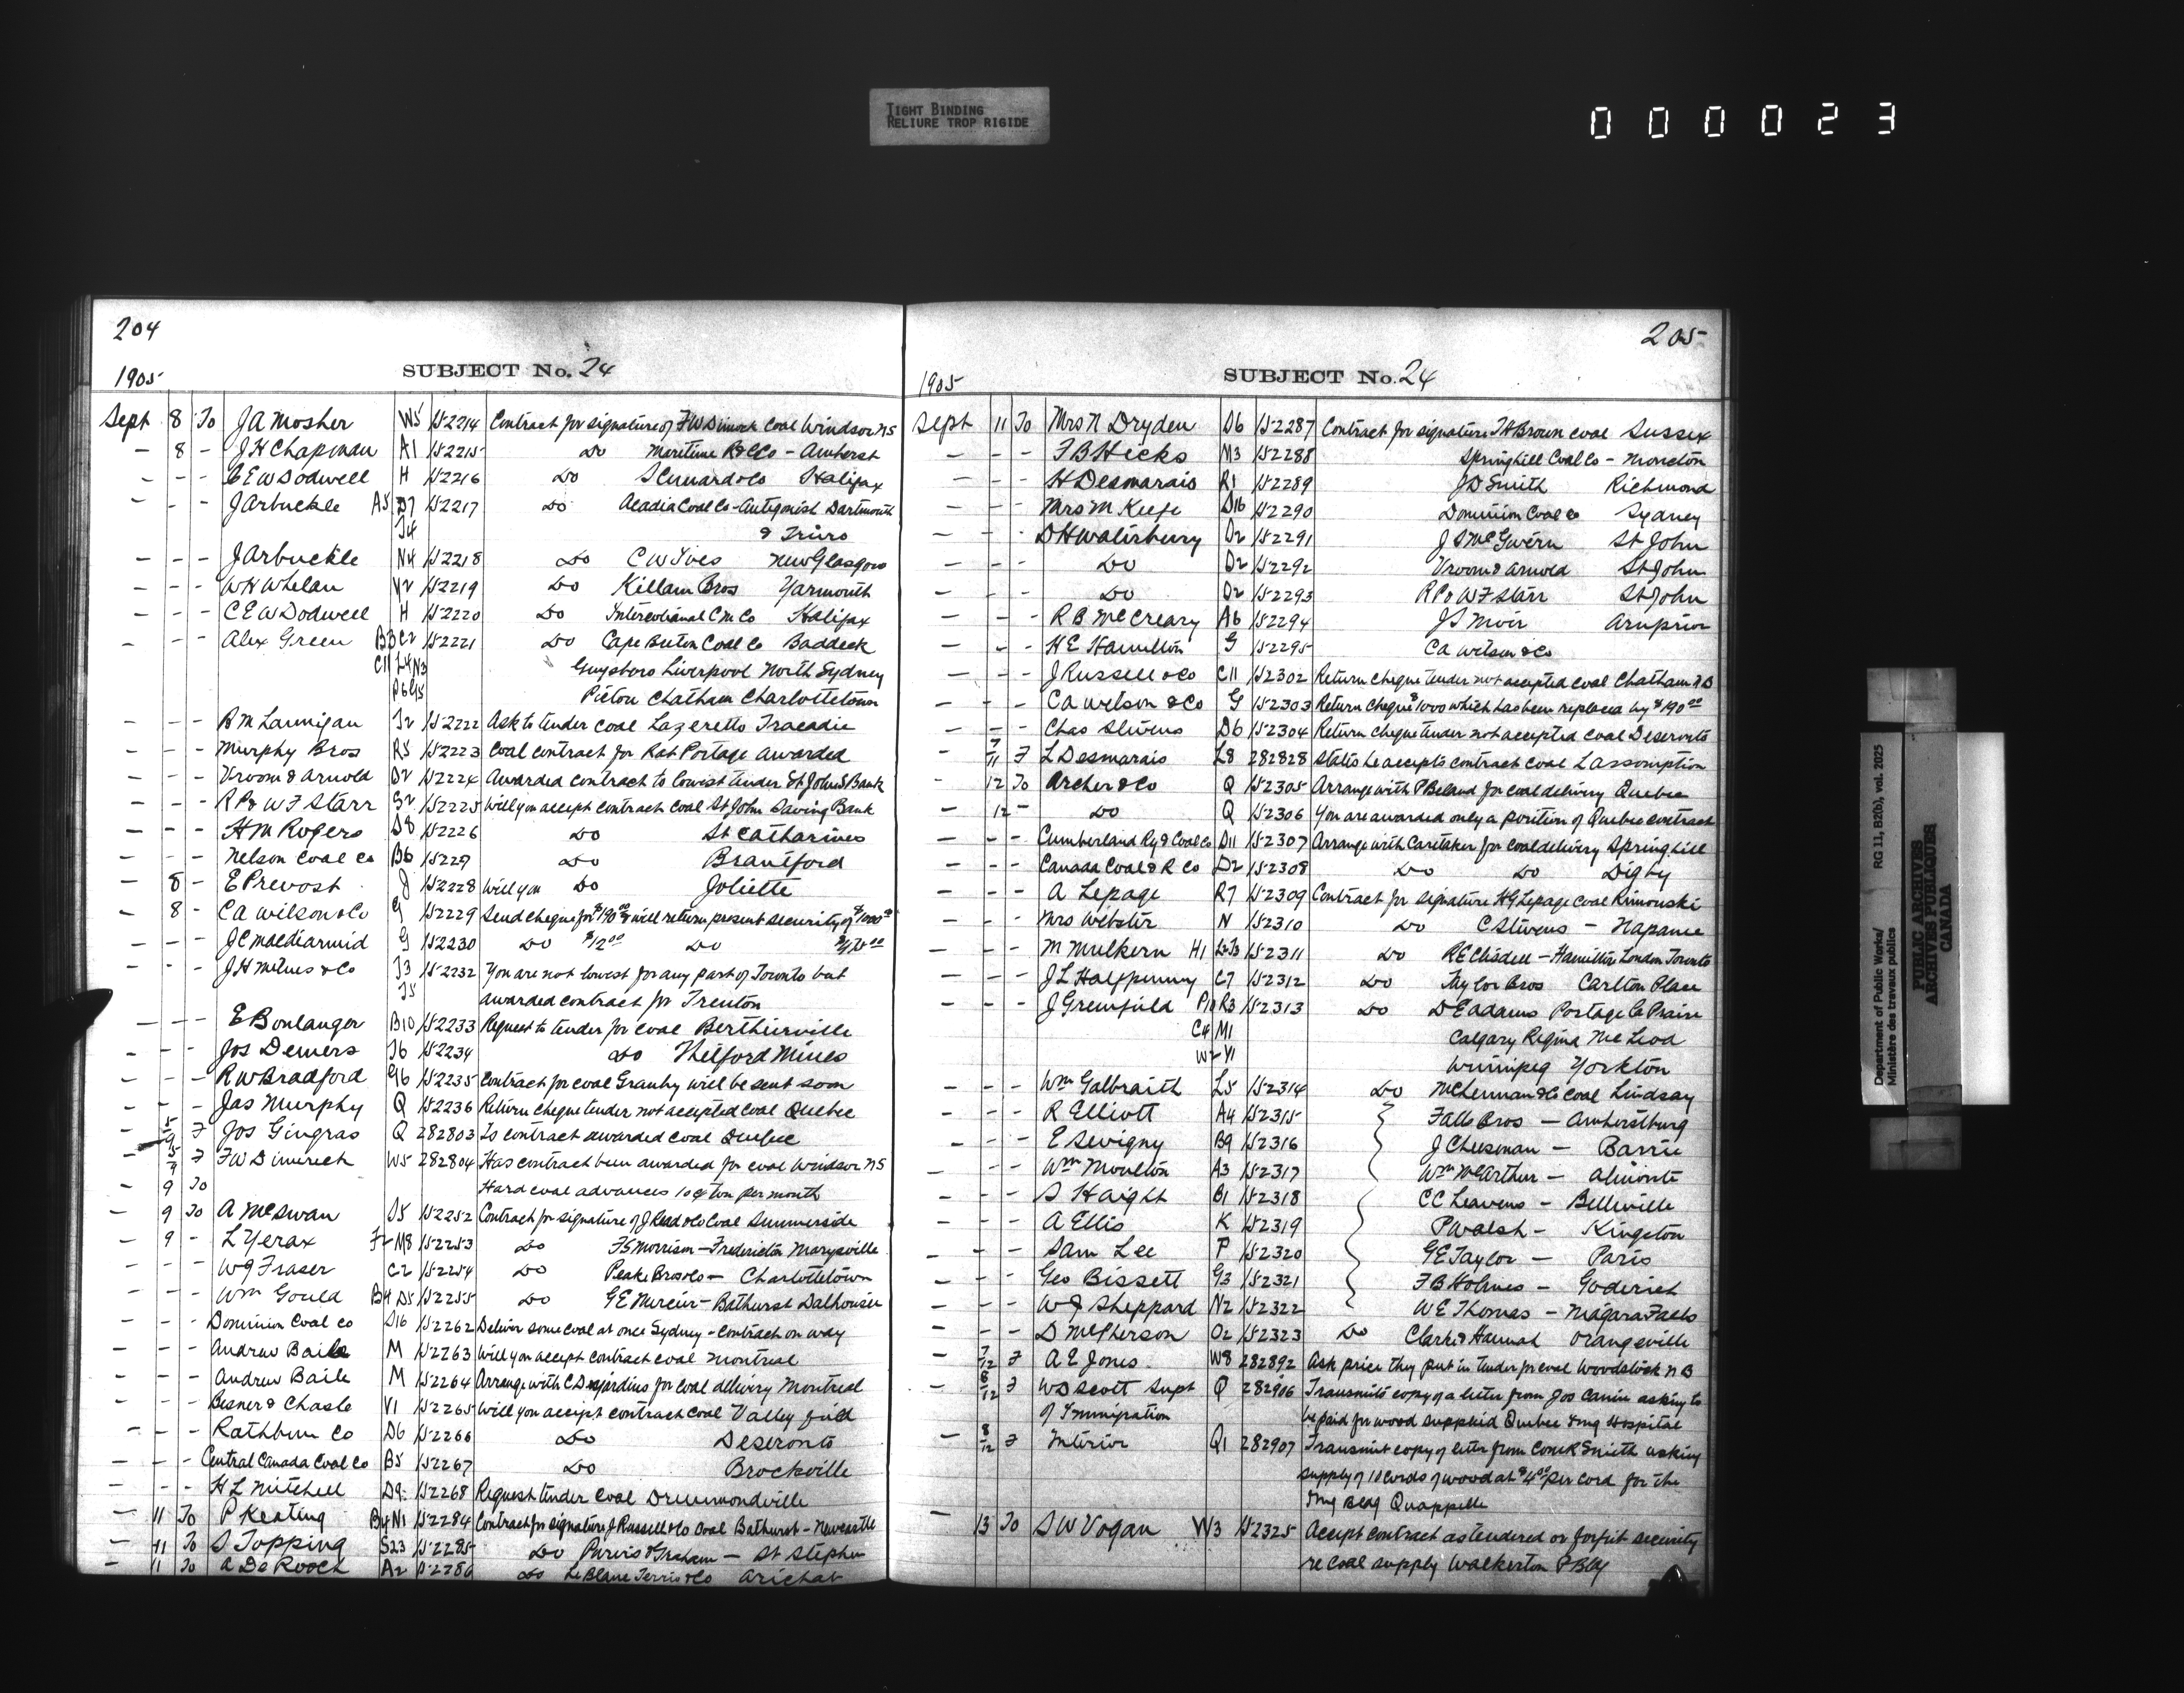 TIGHT BINDING
RELIURE TROP RIGIDE
000023
204
SUBJECT No. 24
1905
Sept 8 To J A Mosher W5 152214 Contract for signature of F W Dimock Coal Windsor NS
— 8 - J H Chapman A1 152215 Do Maritime R & C Co - Amherst
- - - C E W Dodwell H 152216 Do S Cunard & Co Halifax
- - - J Arbuckle A5 D7 152217 Do Acadia Coal Co - Antigonish Dartmouth
T4 & Truro
— - - J Arbuckle N4 152218 Do C W Ives New Glasgow
— - - W H Whelan Y2 152219 Do Killam Bros Yarmouth
- - - C E W Dodwell H 152220 Do Intercolonial C M Co Halifax
- - - Alex Green B3 C2 152221 Do Cape Breton Coal Co Baddeck
C11 L4 N3 Guysboro Liverpool North Sydney
P6 G5 Pictou Chatham Charlottetown
- - - R M Lannigan T2 152222 Ask to tender coal Lazeretto Tracadie
- - - Murphy Bros R5 152223 Coal contract for Rat Portage awarded
- - - Vroom & Arnold D2 152224 Awarded contract to lowest tender St John S Bank
- - - R P & W F Starr S2 152225 Will you accept contract coal St John Saving Bank
- - - H M Rogers D8 152226 Do St Catharines
- - - Nelson Coal Co B6 15229 Do Brantford
— 8 - E Prevost J 152228 Will you Do Joliette
- 8 - C A Wilson & Co G 152229 Send cheque for $190.00 & will return present security of $1000.00
- - - J C MacDiarmid G 152230 Do $12.00 Do
- - - J H Milnes & Co T3 152232 You are not lowest for any part of Toronto but
T5 awarded contract for Trenton
— - - E Boulanger B10 152233 Request to tender for coal Berthierville
- - - Jos Demers T6 152234 Do Thetford Mines
- - - R W Bradford G16 152235 Contract for coal Granby will be sent soon
- - - Jas Murphy Q 152236 Return cheque tender not accepted coal Quebec
- 5/9 F Jos Gingras Q 282803 Is contract awarded coal Quebec
- 5/9 F F W Dimock W5 282804 Has contract been awarded for coal Windsor NS
- 9 To Hard coal advances 10 c/ ton per month
- 9 To A McSwan S5 152252 Contract for signature of J Read & Co Coal Summerside
- 9 - L Yerax F2 M8 152253 Do F S Morrison - Fredericton Marysville
- - - W J Fraser C2 152254 Do Peake Bros & Co - Charlottetown
- - - Wm Gould B4 D5 152255 Do G E Mercier - Bathurst Dalhousie
- - - Dominion Coal Co D16 152262 Deliver some coal at once Sydney - contract on way
- - - Andrew Baile M 152263 Will you accept contract coal Montreal
- - - Andrew Baile M 152264 Arrange with C Desjardins for coal delivery Montreal
- - - Besner & Chasle V1 152265 Will you accept contract coal Valleyfield
- - - Rathbun Co D6 152266 Do Deseronto
- - - Central Canada Coal Co B5 152267 Do Brockville
- - - H L Mitchell D9 152268 Request tender coal Drummondville
— 11 To P Keating B4 N1 152284 Contract for signature J Russell & Co coal Bathurst - Newcastle
- 11 To S Topping S23 152285 Do Purvis & Graham - St Stephen
- 11 To A De Roock A2 152286 Do Le Blanc Terris & Co Arichat
205
SUBJECT No. 24
1905
Sept 11 To Mrs N Dryden D6 152287 Contract for signature T H Brown coal Sussex
— - - F B Hicks M3 152288 Springhill Coal Co - Moncton
- - - H Desmarais R1 152289 J D Smith Richmond
- - - Mrs M Keefe D16 152290 Dominion Coal Co Sydney
— - - D H Waterbury D2 152291 J S McGivern St John
- - - Do D2 152292 Vroom & Arnold St John
- - - Do D2 152293 R P & W F Starr St John
- - - R B McCreary A6 152294 J S Moir Arnprior
- - - H E Hamilton G 152295 C A Wilson & Co
- - - J Russell & Co C11 152302 Return cheque tender not accepted coal Chatham N B
- - - C A Wilson & Co G 152303 Return cheque $1000 which has been replaced by $190.00
- - - Chas Stevens D6 152304 Return cheque tender not accepted coal Deseronto
- 7/11 F L Desmarais L8 282828 States he accepts contract coal L'assomption
- 12 To Archer & Co Q 152305 Arrange with P Beland for coal delivery Quebec
- 12 - Do Q 152306 You are awarded only a portion of Quebec contract
- - - Cumberland Ry & Coal Co D11 152307 Arrange with Caretaker for coal delivery Springhill
- - - Canada Coal & R Co D2 152308 Do Do Digby
- - - A Lepage R7 152309 Contract for signature H G Lepage coal Rimouski
- - - Mrs Webster N 152310 Do C Stevens - Napanee
- - - M Mulkern H1 L2 T3 152311 Do R E Clisdell - Hamilton London Toronto
- - - J L Halfpenny C7 152312 Do Taylor Bros Carlton Place
- - - J Greenfield P10 R3 152313 Do D E Adams Portage La Prairie
C4 M1 Calgary Regina McLeod
W2 Y1 Winnipeg Yorkton
- - - Wm Galbraith L5 152314 Do McLennan & Co coal Lindsay
- - - R Elliott A4 152315 Falls Bros - Amherstburg
- - - E Sevigny B9 152316 J Cheesman - Barrie
- - - Wm Moulton A3 152317 Wm McArthur - Almonte
- - - S Haight B1 152318 C C Leavens - Belleville
- - - A Ellis K 152319 P Walsh - Kingston
- - - Sam Lee P 152320 G E Taylor - Paris
- - - Geo Bissett G3 152321 F B Holmes - Goderich
- - - W J Sheppard N2 152322 W E Thomas - Niagara Falls
- - - D McPherson O2 152323 Do Clarke & Hannah Orangeville
- 7/12 F A E Jones W8 282892 Ask price they put in tender for coal Woodstock N B
- 8/12 F W D Scott Supt Q 282906 Transmits copy of a letter from Jos Carrier asking to
of Immigration be paid for wood supplied Quebec Img Hospital
- 8/12 F Interior Q1 282907 Transmit copy of letter from Comr Smith asking
supply of 10 cords of wood at $4.00 per cord for the
Img Bldg Quappelle
— 13 To S W Vogan W3 152325 Accept contract as tendered or forfeit security
re coal supply Walkerton P Bldg
Department of Public Works/
Ministère des travaux publics
RG 11, B2(b), vol. 2025
PUBLIC ARCHIVES
ARCHIVES PUBLIQUES
CANADA